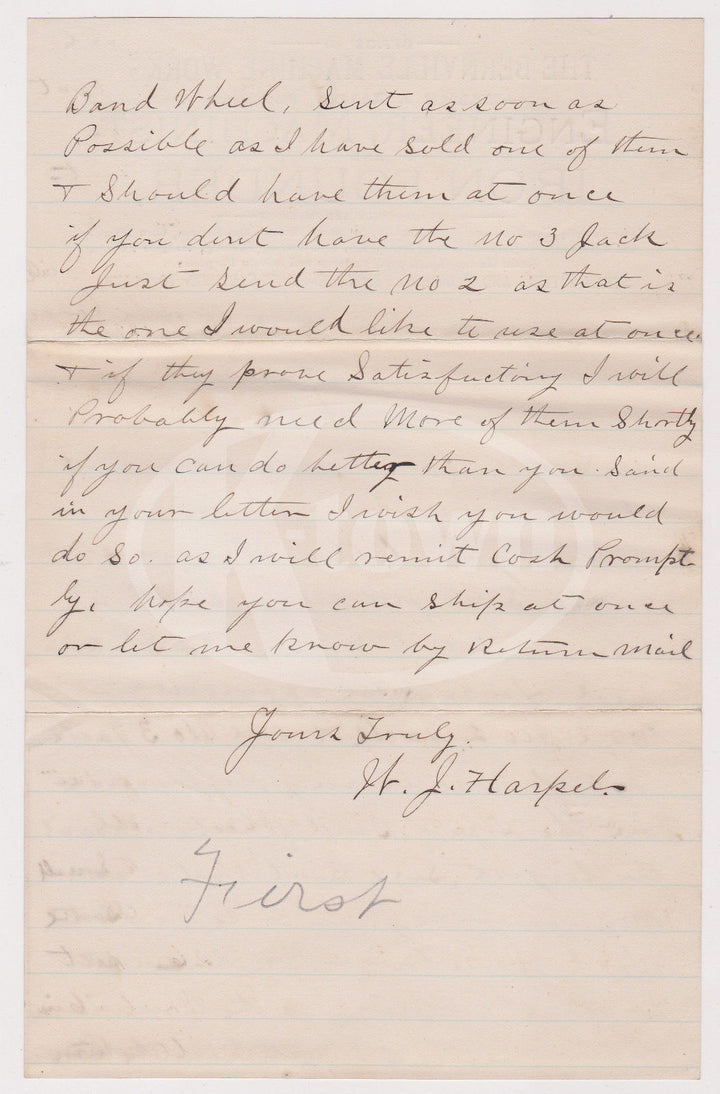 Band Wheel, Sent as soon as
Possible as I have Sold one of them
& Should have them at once
if you dont have the No 3 Jack
Just Send the No 2 as that is
the one I would like to use at once.
& if they prove Satisfactory I will
Probably need More of them Shortly
if you can do better than you Said
in your letter I wish you would
do So. as I will remit Cash Prompt-
ly, hope you can Ship at once
or let me know by Return Mail
Yours Truly.
W. J. Harpel.
First